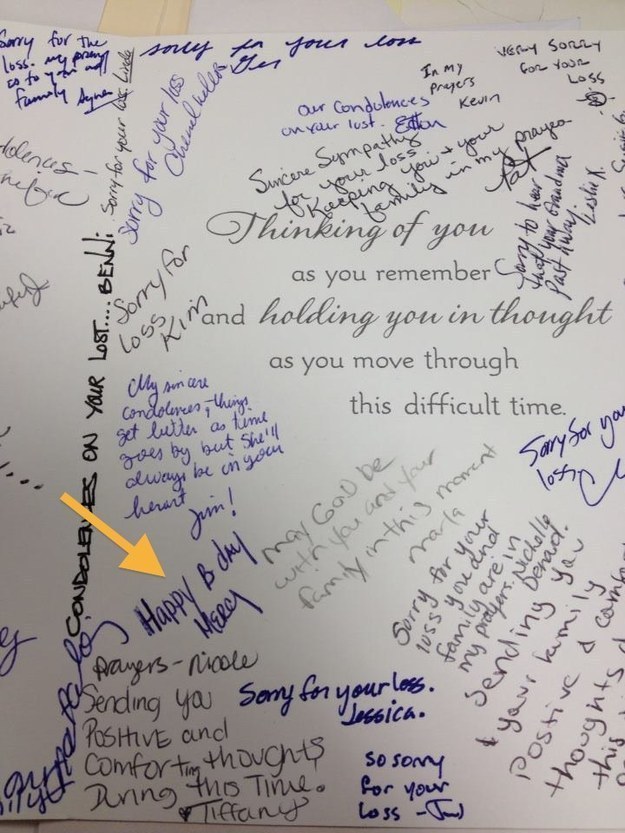 Sorry for the
loss. my prayers
as to you and
family
Sorry for your loss. Linda
sorry for your loss
Sorry for your loss
In my
prayers
Kevin
VERY SORRY
FOR YOUR
LOSS
our condolences
on your lost. Ethan
Sincere Sympathy
for your loss.
Keeping you + your
family in my prayers
Pat
Sorry to hear
that your Grandma
Past Away
Leslie K.
Thinking of you
as you remember
and holding you in thought
as you move through
this difficult time.
Sorry for
loss
Kim
CONDOLENCES ON YOUR LOST.... BENNI
My sincere
condolences, things
get better as time
goes by but she'll
always be in your
heart
Jim!
Sorry for your
loss
may God be
with you and your
family in this moment
marla
Happy B day
Mercy
Sorry for your
loss you and
family are in
my prayers. Nichelle
Sending you
& your family
Positive &
thoughts
this
prayers - nicole
Sending you
Positive and
Comforting thoughts
During this Time.
Tiffany
Sorry for your loss.
Jessica.
so sorry
for your
loss